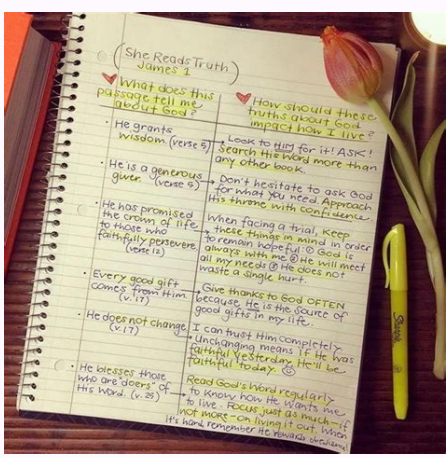 (She Reads Truth)
James 1
What does this
passage tell me
about God?
• He grants
wisdom. (verse 5)
• He is a generous
giver. (verse 5)
• He has promised
the crown of life
to those who
faithfully persevere.
verse 12
• Every good gift
comes from Him.
(v. 17)
• He does not change.
(v. 17)
• He blesses those
who are "doers" of
His Word. (v. 25)
How should these
truths about God
impact how I live?
Look to HIM for it! ASK!
Search His Word more than
any other book.
Don't hesitate to ask God
for what you need. Approach
His throne with confidence.
When facing a trial, keep
these things in mind in order
to remain hopeful: ① God is
always with me ② He will meet
all my needs ③ He does not
waste a single hurt.
Give thanks to God OFTEN
because He is the source of
good gifts in my life.
I can trust Him completely.
Unchanging means if He was
faithful yesterday, He'll be
faithful today. ☺
Read God's Word regularly
to know how He wants me
to live. Focus just as much–if
not more–on living it out. When
it's hard, remember He rewards obedience!
Sharpie